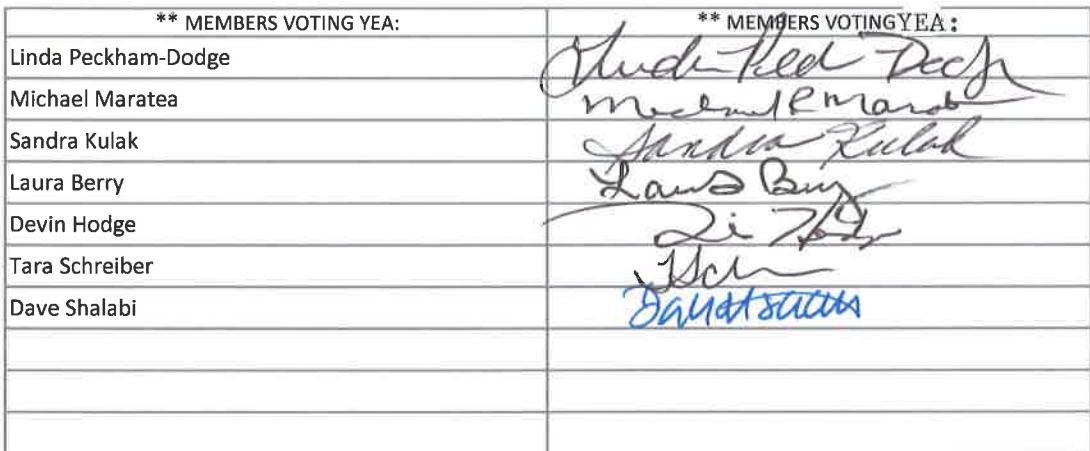 ** MEMBERS VOTING YEA: ** MEMBERS VOTING YEA:
Linda Peckham-Dodge
Michael Maratea Michael R Marat
Sandra Kulak Sandra Kulak
Laura Berry Laura Berry
Devin Hodge
Tara Schreiber
Dave Shalabi